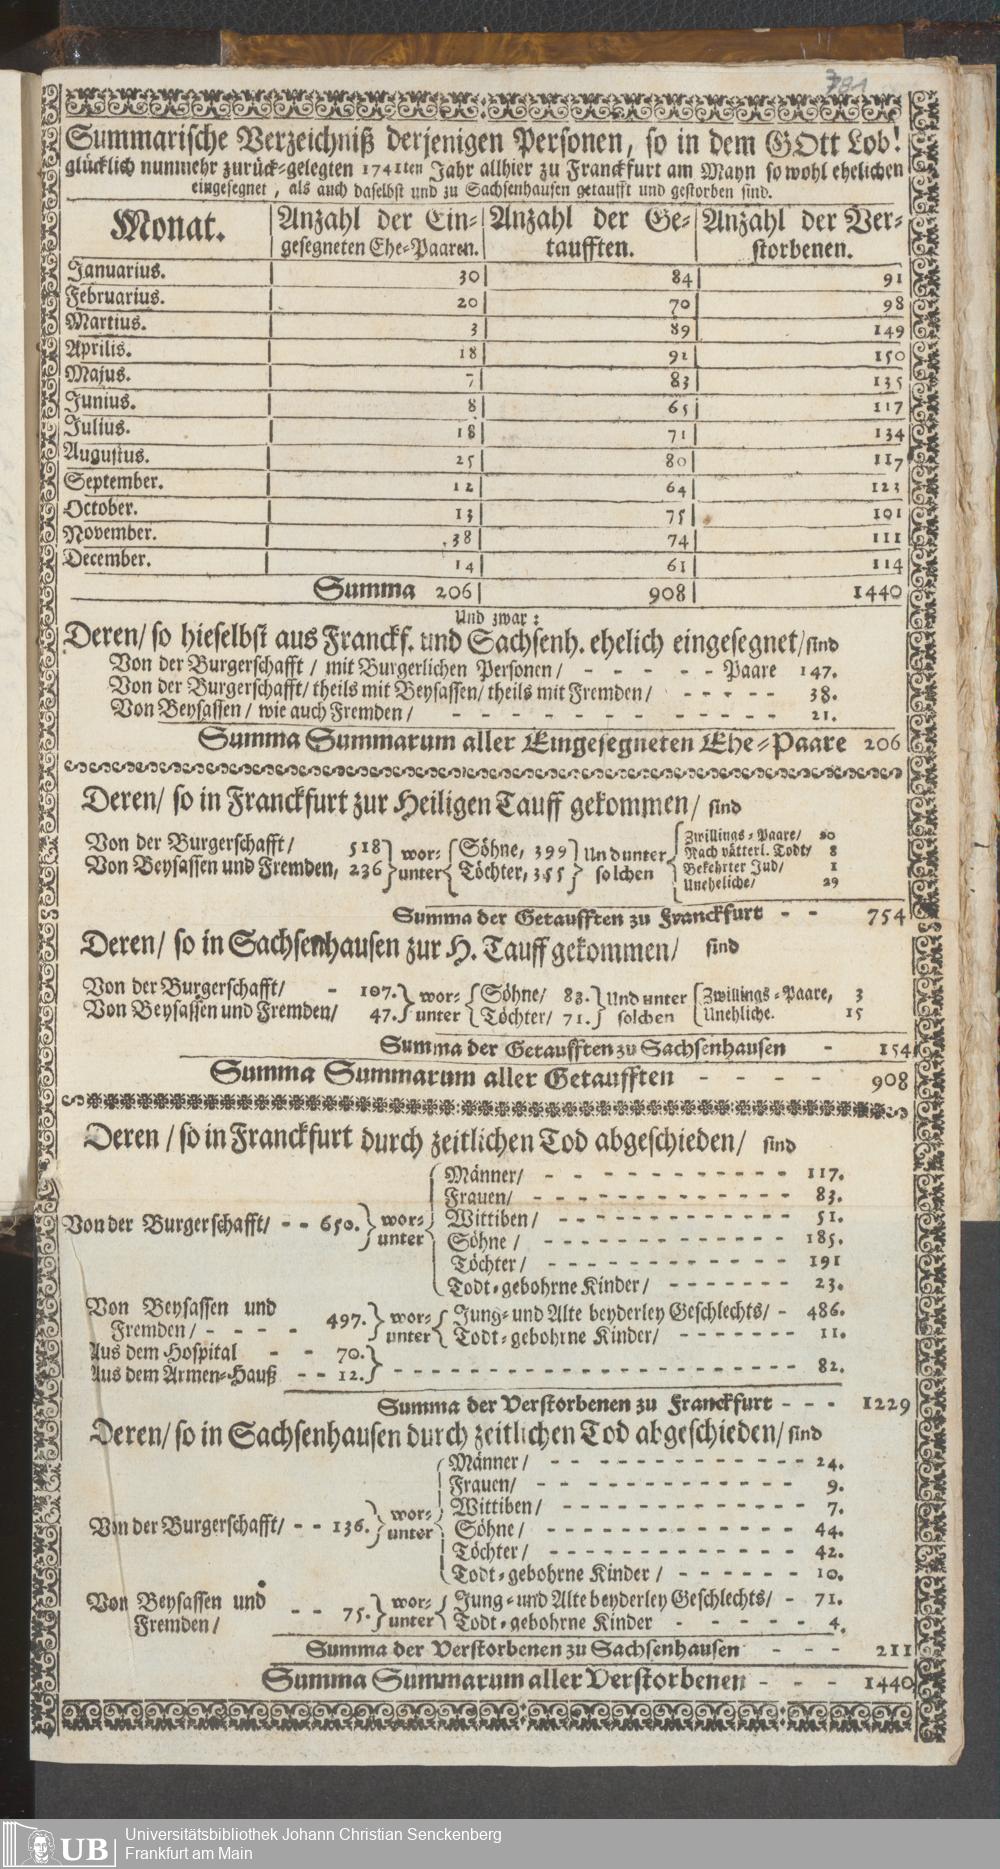 791
Summarische Verzeichniß derjenigen Personen, so in dem GOtt Lob!
glücklich nunmehr zurück-gelegten 1741ten Jahr allhier zu Franckfurt am Mayn sowohl ehelichen
eingesegnet, als auch daselbst und zu Sachsenhausen getaufft und gestorben sind.
Monat. Anzahl der Ein- Anzahl der Ge- Anzahl der Ver-
gesegneten Ehe-Paaren. taufften. storbenen.
Januarius. 30 84 91
Februarius. 20 70 98
Martius. 3 89 149
Aprilis. 18 92 150
Majus. 7 83 135
Junius. 8 65 117
Julius. 18 71 134
Augustus. 25 80 117
September. 12 64 123
October. 13 75 101
November. 38 74 111
December. 14 61 114
Summa 206 908 1440
Und zwar:
Deren/ so hieselbst aus Franckf. und Sachsenh. ehelich eingesegnet/ sind
Von der Burgerschafft / mit Burgerlichen Personen / - - - - - Paare 147.
Von der Burgerschafft/ theils mit Beysassen/ theils mit Fremden / - - - - - 38.
Von Beysassen / wie auch Fremden / - - - - - - - - - - - - 21.
Summa Summarum aller Eingesegneten Ehe-Paare 206
Deren/ so in Franckfurt zur Heiligen Tauff gekommen/ sind
Von der Burgerschafft / 518 wor- Söhne, 399 Und unter Zwillings-Paare/ 20
Von Beysassen und Fremden, 236 unter Töchter, 355 solchen Nach vätterl. Todt/ 8
Bekehrter Jud/ 1
Uneheliche/ 29
Summa der Getaufften zu Franckfurt - - 754
Deren/ so in Sachsenhausen zur H. Tauff gekommen/ sind
Von der Burgerschafft/ - 107. wor- Söhne/ 83. Und unter Zwillings-Paare, 3
Von Beysassen und Fremden/ 47. unter Töchter/ 71. solchen Unehliche. 15
Summa der Getaufften zu Sachsenhausen - 154
Summa Summarum aller Getaufften - - - - 908
Deren / so in Franckfurt durch zeitlichen Tod abgeschieden/ sind
Männer/ - - - - - - - - - - - 117.
Frauen/ - - - - - - - - - - - 83.
Von der Burgerschafft/ - - 650. wor- Wittiben / - - - - - - - - - - 51.
unter Söhne / - - - - - - - - - - - 185.
Töchter/ - - - - - - - - - - - 191
Todt-gebohrne Kinder/ - - - - - - - 23.
Von Beysassen und
Fremden / - - - - 497. wor- Jung- und Alte beyderley Geschlechts/ - 486.
unter Todt-gebohrne Kinder/ - - - - - - - 11.
Aus dem Hospital - - 70.
Aus dem Armen-Hauß - - 12. - - - - - - - - - - - - - - - - - - 82.
Summa der Verstorbenen zu Franckfurt - - - 1229
Deren/ so in Sachsenhausen durch zeitlichen Tod abgeschieden/ sind
Männer / - - - - - - - - - - - 24.
Frauen/ - - - - - - - - - - - 9.
Wittiben / - - - - - - - - - - - 7.
Von der Burgerschafft/ - - 136. wor- Söhne / - - - - - - - - - - - 44.
unter Töchter / - - - - - - - - - - - 42.
Todt-gebohrne Kinder / - - - - - - 10.
Von Beysassen und
Fremden / - - 75. wor- Jung- und Alte beyderley Geschlechts/ - 71.
unter Todt-gebohrne Kinder - - - - - 4.
Summa der Verstorbenen zu Sachsenhausen - - - 211
Summa Summarum aller Verstorbenen - - - 1440
UB
Universitätsbibliothek Johann Christian Senckenberg
Frankfurt am Main